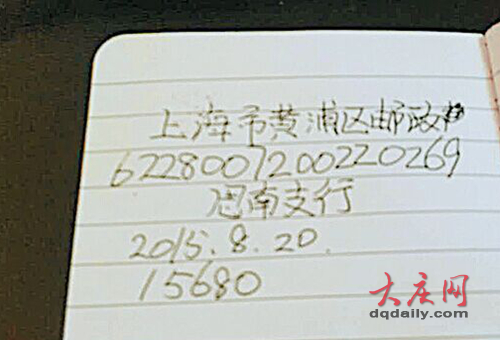 上海市黄浦区邮政
6228007200220269
思南支行
2015.8.20.
15680
大庆网
dqdaily.com